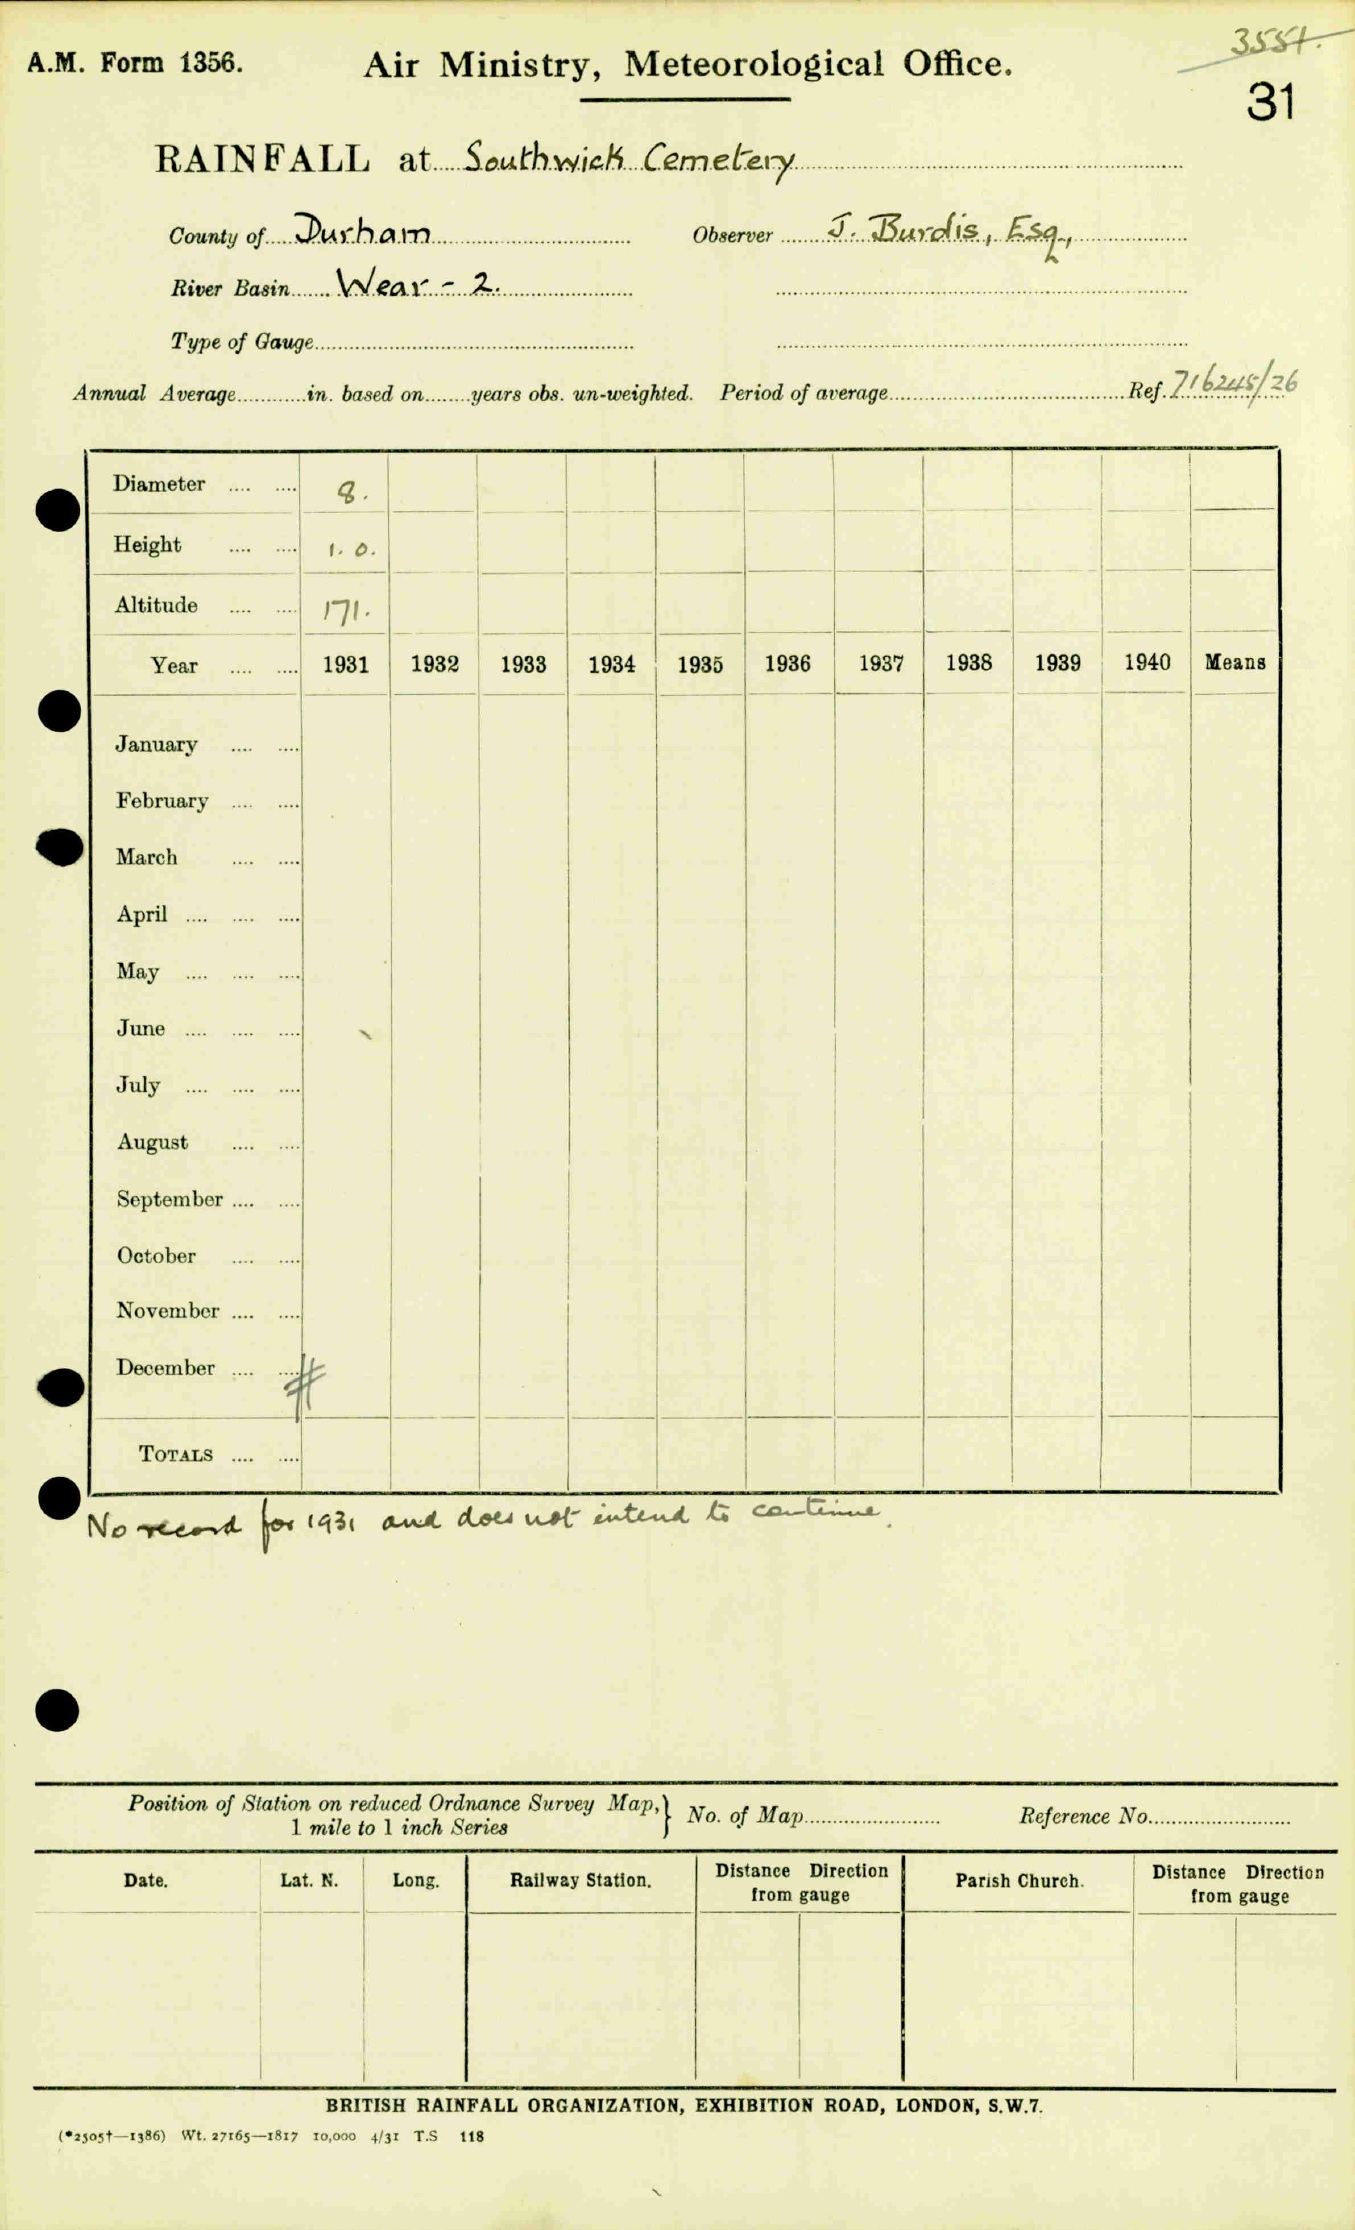 3551.
A.M. Form 1356. Air Ministry, Meteorological Office.
31
RAINFALL at Southwick Cemetery
County of Durham Observer J. Burdis, Esq.,
River Basin Wear - 2.
Type of Gauge
Annual Average in. based on years obs. un-weighted. Period of average Ref. 716245/26
Diameter 8.
Height 1. 0.
Altitude 171.
Year 1931 1932 1933 1934 1935 1936 1937 1938 1939 1940 Means
January
February
March
April
May
June
July
August
September
October
November
December
TOTALS
No record for 1931 and does not intend to continue.
Position of Station on reduced Ordnance Survey Map, } No. of Map Reference No.
1 mile to 1 inch Series
Date. Lat. N. Long. Railway Station. Distance Direction from gauge Parish Church. Distance Direction from gauge
BRITISH RAINFALL ORGANIZATION, EXHIBITION ROAD, LONDON, S.W.7.
(*2505†—1386) Wt. 27165—1817 10,000 4/31 T.S 118